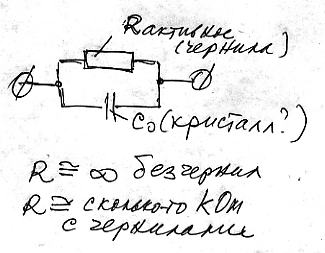 Rактивное
(чернила)
C₀ (кристалл?)
R ≅ ∞ без чернил
R ≅ сколько то кОм
с чернилами